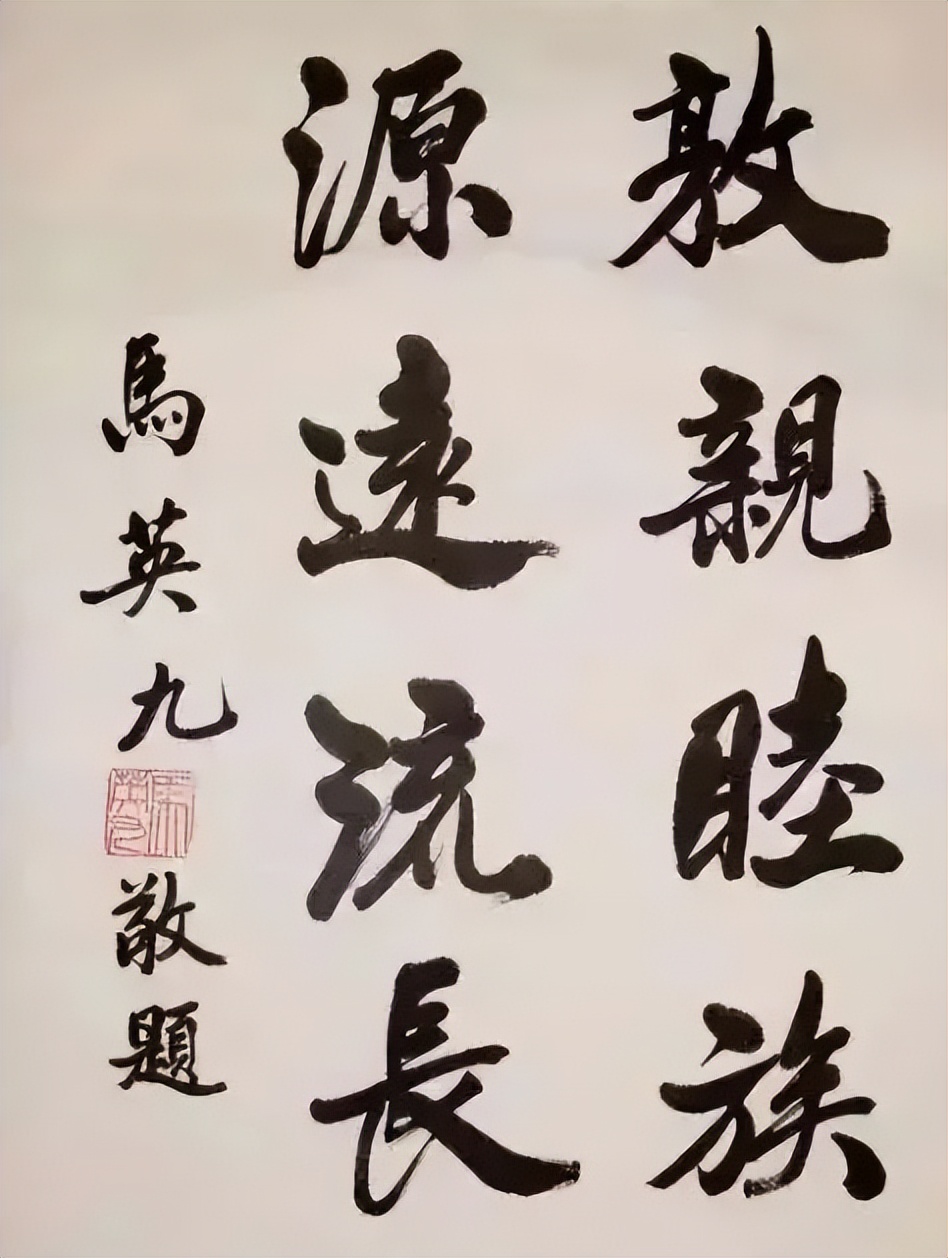 敦親睦族
源遠流長
馬英九
馬英九
敬題